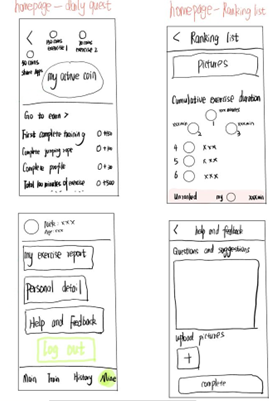 homepage - daily quest
50 coins
exercise 1
20 coins
exercise 2
50 coins
share App
my active coin
Go to earn >
First complete training 0 +50
Complete jumping rope
Complete profile
Total 100 minutes of exercise 0 +500
homepage - Ranking list
< Ranking list
Pictures
Cumulative exercise duration
1
2
3
4 xxx
5
6 xxx
Unranked my
my exercise report
Personal detail
Help and feedback
Log out
Main Train History Mine
< help and feedback
Questions and suggestions
upload pictures
+
complete